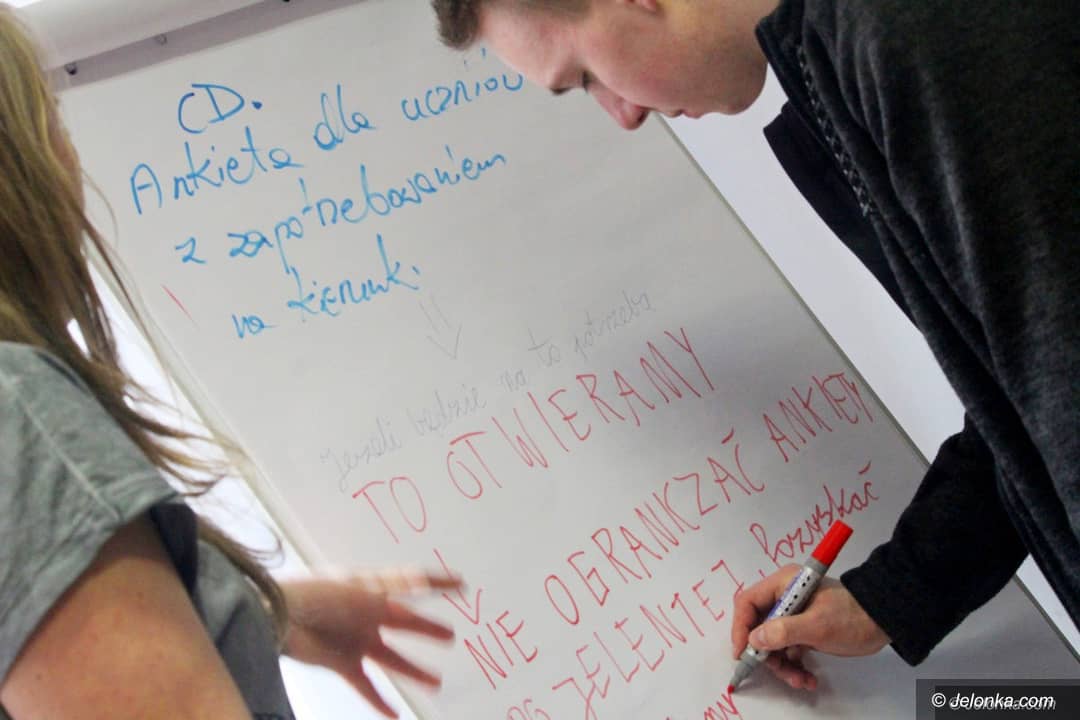 CD.
Ankieta dla uczniów
z zapotrzebowaniem
na kierunk.
Jeżeli będzie na to potrzeba
TO OTWIERAMY
NIE OGRANICZAĆ ANKIETY
JELENIEJ, pozyskać
© Jelonka.com